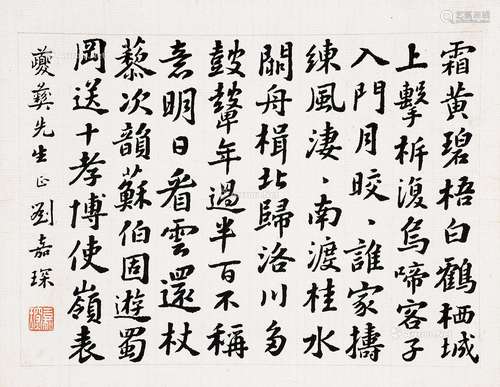 霜黄碧梧白鶴栖城
上擊柝復烏啼客子
入門月皎、誰家擣
練風凄、南渡桂水
闕舟楫北歸洛川多
鼓鼙年過半百不稱
意明日看雲還杖
藜次韻蘇伯固遊蜀
岡送十孝博使嶺表
夔龔先生正劉嘉琛